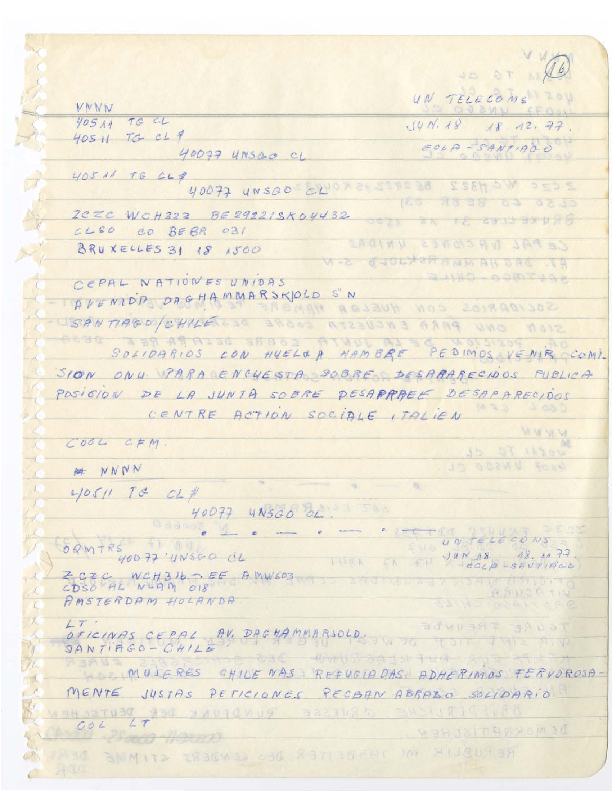 16
NNNN
UN TELECOMS
40511 TG CL
JUN. 18 18. 12. 77.
40511 TG CL #
ECLA - SANTIAGO
40077 UNSGO CL
40511 TG CL #
40077 UNSGO CL
ZCZC WCH322
CLSO CO BEBR 031
BRUXELLES 31 18 1500
CEPAL NATIONES UNIDAS
AVENIDA DAGHAMMARSKJOLD S N
SANTIAGO/CHILE
SOLIDARIOS CON HUELGA HAMBRE PEDIMOS VENIR COMI-
SION ONU PARA ENCUESTA SOBRE DESAPARECIDOS PUBLICA
POSICION DE LA JUNTA SOBRE DESAPAREE DESAPARECIDOS
CENTRE ACTION SOCIALE ITALIEN
COOL CFM.
NNNN
40511 TG CL #
40077 UNSGO CL.
ORMTRS
UN TELECONS
40077 UNSGO CL
JUN 18 18. 77.
ECLA - SANTIAGO
ZCZC AMW603
CDSO AL NLAM 018
AMSTERDAM HOLANDA
LT.
OFICINAS CEPAL AV. DAGHAMMARJOLD.
SANTIAGO - CHILE
MUJERES CHILENAS REFUGIADAS ADHERIMOS FERVOROSA-
MENTE JUSTAS PETICIONES RECBAN ABRAZO SOLIDARIO
COL LT